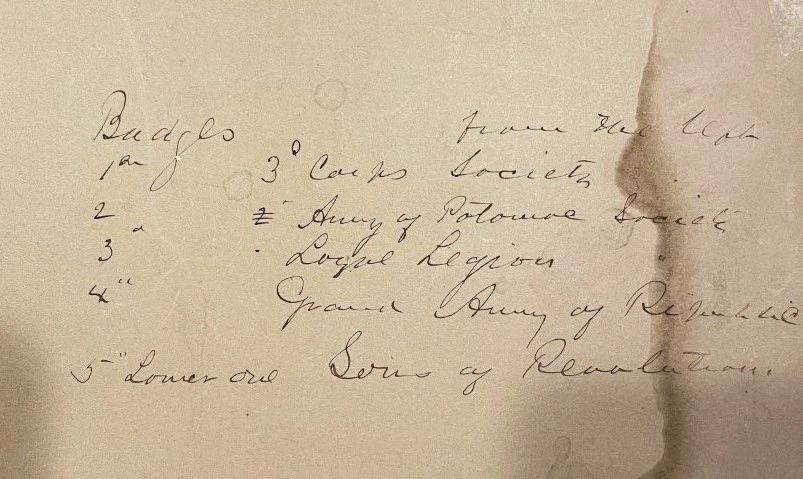 Badges from the left
1st 3d Corps Society
2 " Army of Potomac Society
3 " Loyal Legion "
4" Grand Army of Republic
5" Lower one Sons of Revolution.